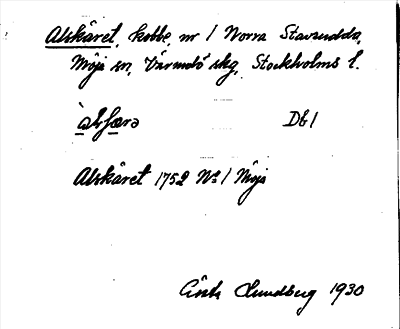 Alskäret, kobbe, nr 1 Norra Stavsudda,
Möja sn, Värmdö skg, Stockholms l.
D61
Alskäret 1752 No 1 Möja
Gösta Lundberg 1930